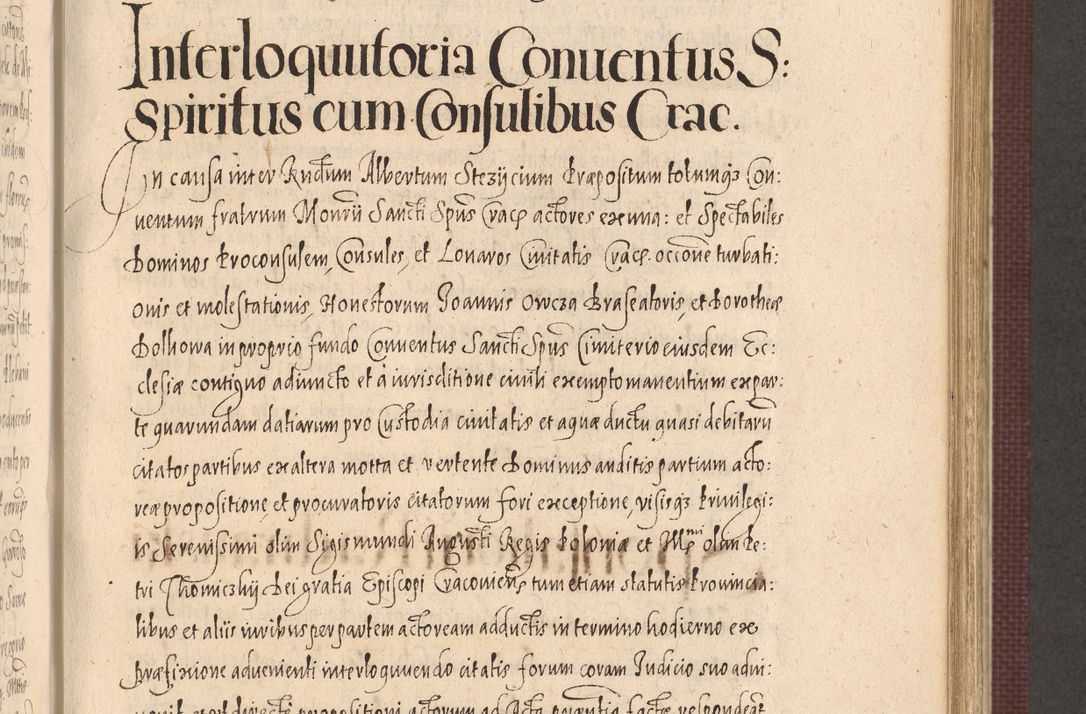 Interloquutoria Conuentus S:
Spiritus cum Consulibus Crac.
In causa inter Rndum Albertum Stezijcium Præpositum totumqz Con:
uentum fratrum Monrii Sancti Spus Crac actores ex una: et Spectabiles
Dominos Proconsulem, Consules, et Lonaros Ciuitatis Crac. occone turbati:
onis et molestationis, Honestorum Joannis Owcza Braseatoris, et Dorotheæ
Dolhowa in proprio fundo Conuentus Sancti Spus Cimiterio eiusdem Ec:
clesiæ contiguo adiuncto et à iurisditione ciuili exempto manentium ex par:
te quarundam datiarum pro Custodia ciuitatis et aquæ ductu quasi debitaru
citatos partibus ex altera motta et vertente Dominus auditis partium acto:
reæ propositione, et procuratoris citatorum fori exceptione, visisqz Priuilegi:
is Serenissimi olim Sigismundi Augusti Regis Poloniæ et Rmi olim Pe:
tri Thomiczkij Dei gratia Episcopi Cracouien tum etiam statutis Prouincia:
libus et aliis iuribus per partem actoream adductis in termino hodierno ex
præfixione aduenienti interloquuendo citatis forum coram Judicio suo adin:
propositioni actorum ad Acta factæ respondeat